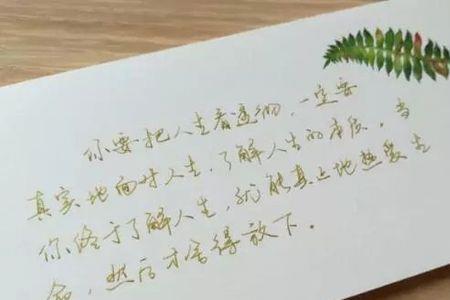 你要把人生看透彻，一定要
真实地面对人生，了解人生的本质，当
你终于了解人生，就能真正地热爱生
命，然后才舍得放下。